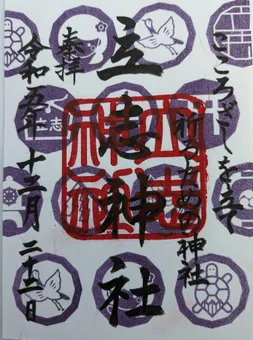 こころざしを立て
祈るための神社
立志神社
奉拝
令和五年十二月二十二日